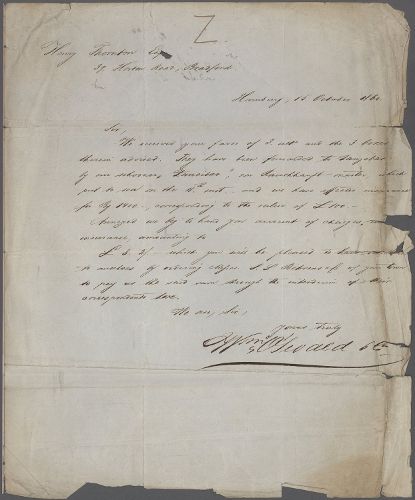 Z
Henry Thornton Esq
39 Horton Road, Bradford
Hamburg, 15 October 186
Sir,
We received your favor of 2. ult and the 3 boxes
therein advised. They have been forwarded to Zanzibar
by our schooner, master, which
put to sea on the inst. and we have effected insurance
for corresponding to the value of £ 100.-
Annexed we beg to hand you account of charges,
insurance, amounting to
£ 5. 3/- which you will be pleased to
to us by ordering Messrs. of your town
to pay us the said sum through the of their
correspondents here.
We are, Sir,
Yours truly
Wm O'Swald & Co